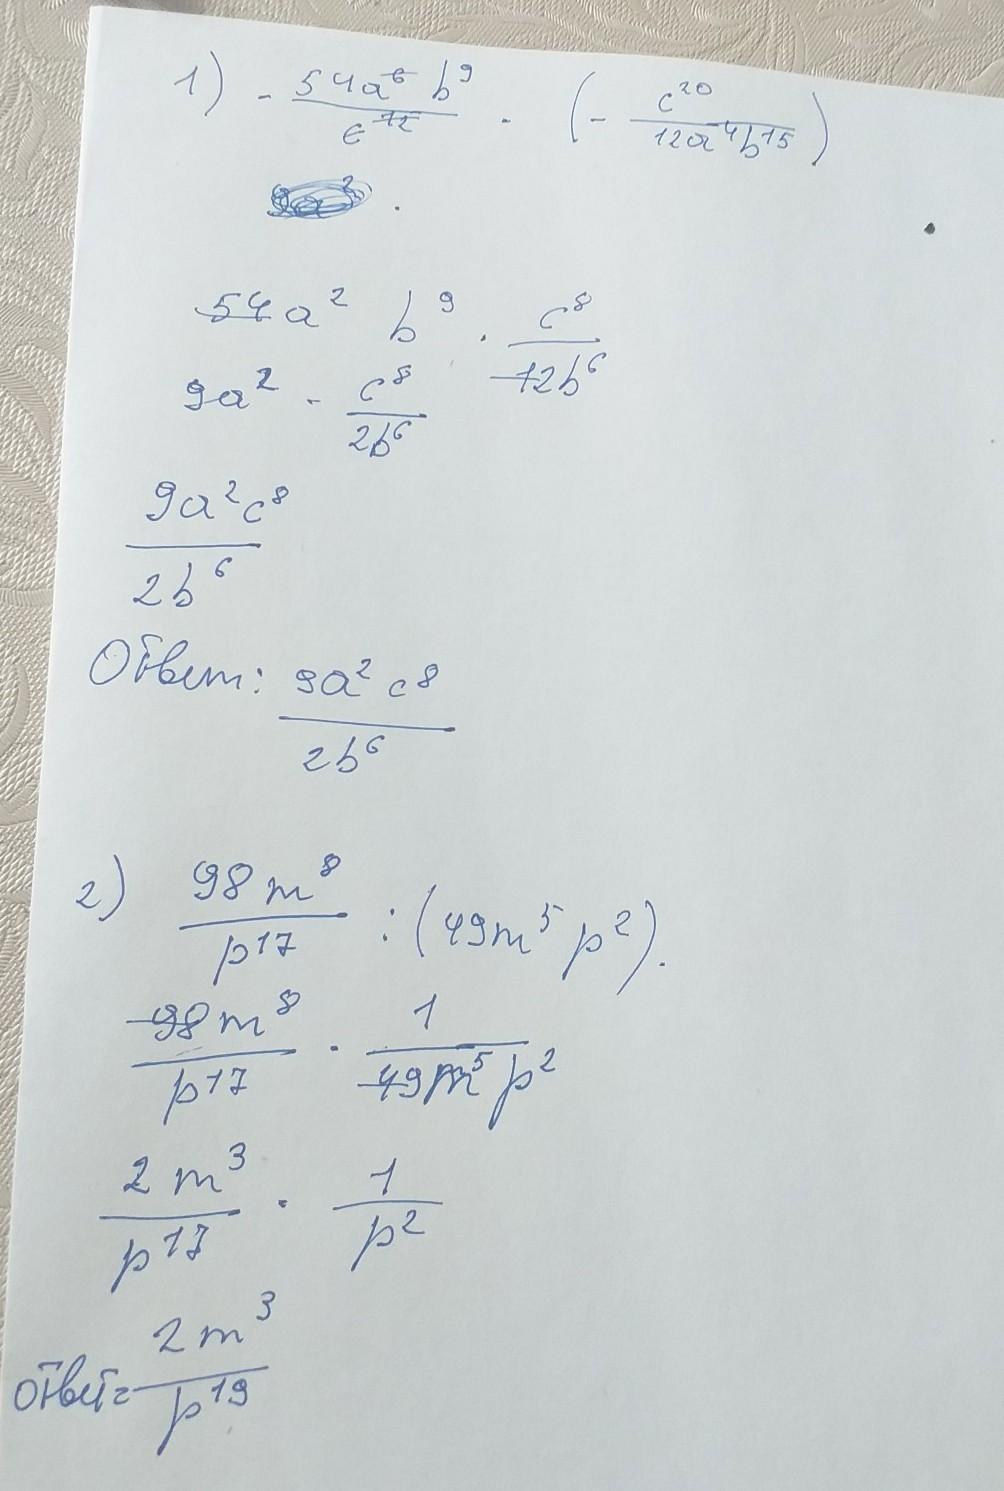 1) - 54a⁶ b⁹ / c¹² · (- c²⁰ / 12a⁴b¹⁵)
54a² b⁹ · c⁸ / 12b⁶
9a² · c⁸ / 2b⁶
9a²c⁸ / 2b⁶
Ответ: 9a² c⁸ / 2b⁶
2) 98m⁸ / p¹⁷ : (49m⁵ p²).
98m⁸ / p¹⁷ · 1 / 49m⁵ p²
2m³ / p¹⁷ · 1 / p²
ответ = 2m³ / p¹⁹